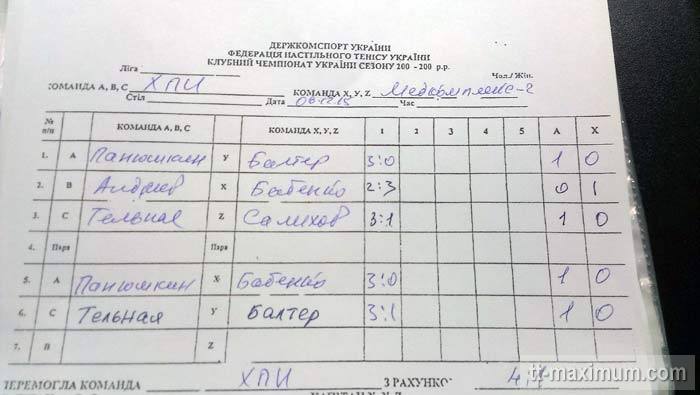 ДЕРЖКОМСПОРТ УКРАЇНИ
ФЕДЕРАЦІЯ НАСТІЛЬНОГО ТЕНІСУ УКРАЇНИ
КЛУБНИЙ ЧЕМПІОНАТ УКРАЇНИ СЕЗОНУ 200 -200 р.р.
Ліга Чол./ Жін.
КОМАНДА А, В, С ХПИ КОМАНДА X, Y, Z Медкомплекс-2
Стіл Дата 06.12.15 Час
№ п/п КОМАНДА А, В, С КОМАНДА X, Y, Z 1 2 3 4 5 А Х
1. А Панюшкин У Балтер 3:0 1 0
2. В Андреев Х Бабенко 2:3 0 1
3. С Тельная Z Салихов 3:1 1 0
4. Пара Пара
5. А Панюшкин Х Бабенко 3:0 1 0
6. С Тельная У Балтер 3:1 1 0
7. В Z
ПЕРЕМОГЛА КОМАНДА ХПИ З РАХУНКО
tt-maximum.com